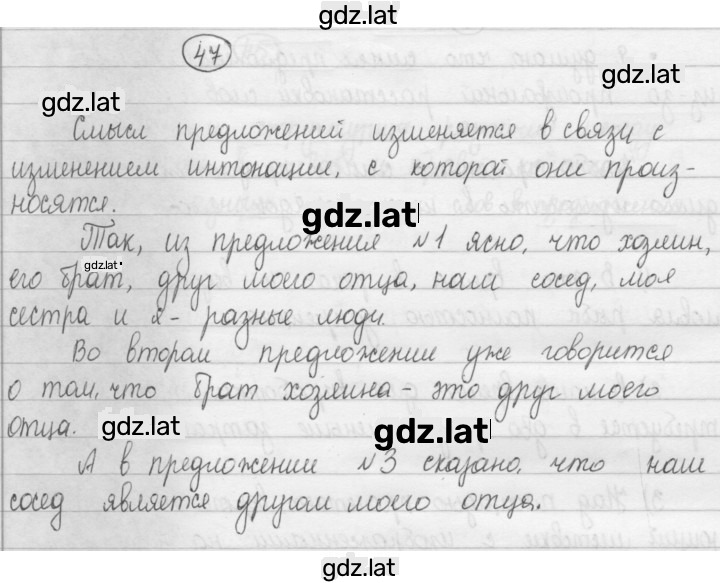 gdz.lat
47
gdz.lat
Смысл предложений изменяется в связи с
изменением интонации, с которой они произ-
носятся.
gdz.lat
Так, из предложения №1 ясно, что хозяин,
gdz.lat
его брат, друг моего отца, наш сосед, моя
сестра и я - разные люди.
Во втором предложении уже говорится
о том, что брат хозяина - это друг моего
отца.
gdz.lat
gdz.lat
А в предложении №3 сказано, что наш
сосед является другом моего отца.
gdz.lat